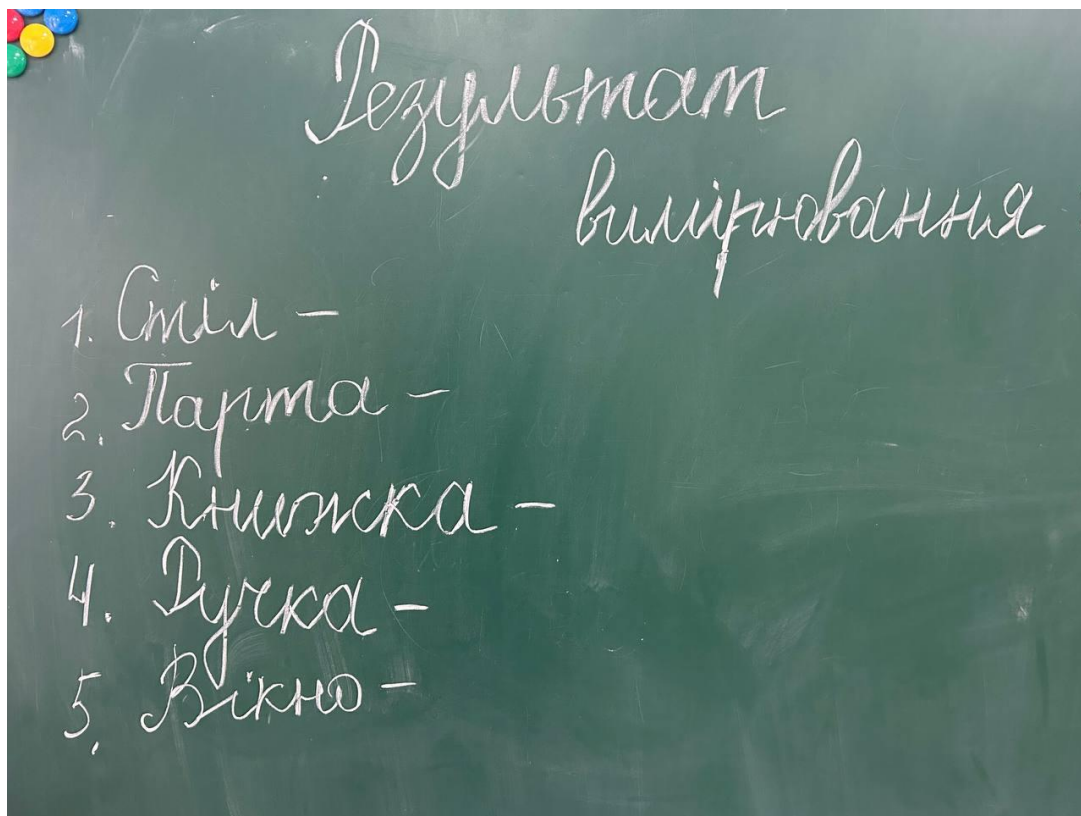 Результат
вимірювання
1. Стіл –
2. Парта –
3. Книжка –
4. Ручка –
5. Вікно –